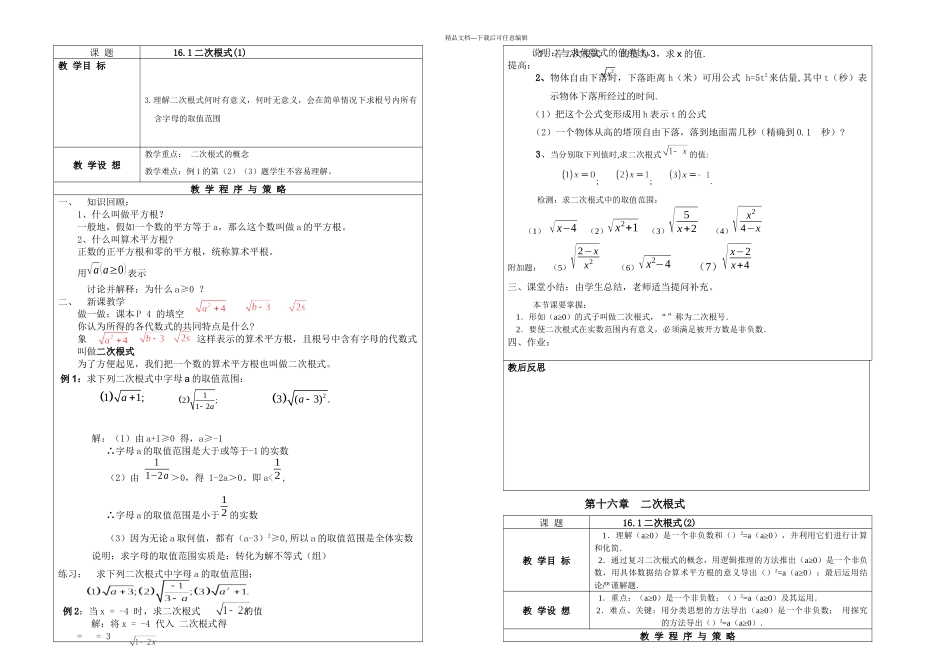 精品文档---下载后可任意编辑
课 题 16.1二次根式(1)
教 学目 标
3.理解二次根式何时有意义，何时无意义，会在简单情况下求根号内所有
含字母的取值范围
教 学设 想
教学重点： 二次根式的概念
教学难点：例1的第（2）（3）题学生不容易理解。
教 学 程 序 与 策 略
一、 知识回顾：
1、什么叫做平方根？
一般地，假如一个数的平方等于 a，那么这个数叫做 a 的平方根。
2、什么叫算术平方根？
正数的正平方根和零的平方根，统称算术平根。
用√a(a≥0)表示
讨论并解释：为什么 a≥0 ？
二、 新课教学
做一做：课本 P 4 的填空 √(a²+4) √(b-3) √(2s)
你认为所得的各代数式的共同特点是什么？
象 √(a²+4) √(b-3) √(2s) 这样表示的算术平方根，且根号中含有字母的代数式
叫做二次根式
为了方便起见，我们把一个数的算术平方根也叫做二次根式。
例 1：求下列二次根式中字母 a 的取值范围：
(1)√(a+1); (2)√(1/(1-2a)); (3)√((a-3)²).
解：（1）由 a+1≥0 得，a≥-1
∴字母 a 的取值范围是大于或等于-1 的实数
（2）由 1/(1-2a) >0，得 1-2a>0。即 a< 1/2 ,
∴字母 a 的取值范围是小于 1/2 的实数
（3）因为无论 a 取何值，都有（a-3）²≥0,所以 a 的取值范围是全体实数
说明：求字母的取值范围实质是：转化为解不等式（组）
练习： 求下列二次根式中字母 a 的取值范围：
(1)√(a+3); (2)√(-1/(3-a)); (3)√(a²).
例 2：当 x = -4 时，求二次根式 √(1-2x) 的值
解：将 x = -4 代入 二次根式得
√(1-2x) = = 3
提高：
2、物体自由下落时，下落距离 h（米）可用公式 h=5t²来估量,其中 t（秒）表
示物体下落所经过的时间.
（1）把这个公式变形成用 h 表示 t 的公式
（2）一个物体从高的塔顶自由下落，落到地面需几秒（精确到 0.1 秒）？
3、当分别取下列值时,求二次根式 √(1-x) 的值：
(1)x=0; (2)x=1; (3)x=-1.
检测：求二次根式中的取值范围：
（1） √(x-4) （2）√(x²+1) （3）√(5/(x+2)) （4）√(x²/(4-x))
附加题： （5）√((2-x)/x²) （6）√(x²-4) （7）√((x-2)/(x+4))
三、课堂小结：由学生总结，老师适当提问补充。
本节课要掌握：
1．形如(a≥0）的式子叫做二次根式，“”称为二次根号．
2．要使二次根式在实数范围内有意义，必须满足被开方数是非负数．
四、作业：
教后反思
第十六章 二次根式
课 题 16.1二次根式(2)
教 学目 标
1．理解（a≥0）是一个非负数和（）²=a（a≥0），并利用它们进行计算
和化简．
2．通过复习二次根式的概念，用逻辑推理的方法推出（a≥0）是一个非负
数，用具体数据结合算术平方根的意义导出（）²=a（a≥0）；最后运用结
论严谨解题．
教 学设 想
1．重点：（a≥0）是一个非负数；（）²=a（a≥0）及其运用．
2．难点、关键：用分类思想的方法导出（a≥0）是一个非负数； 用探究
的方法导出（）²=a（a≥0）．
教 学 程 序 与 策 略